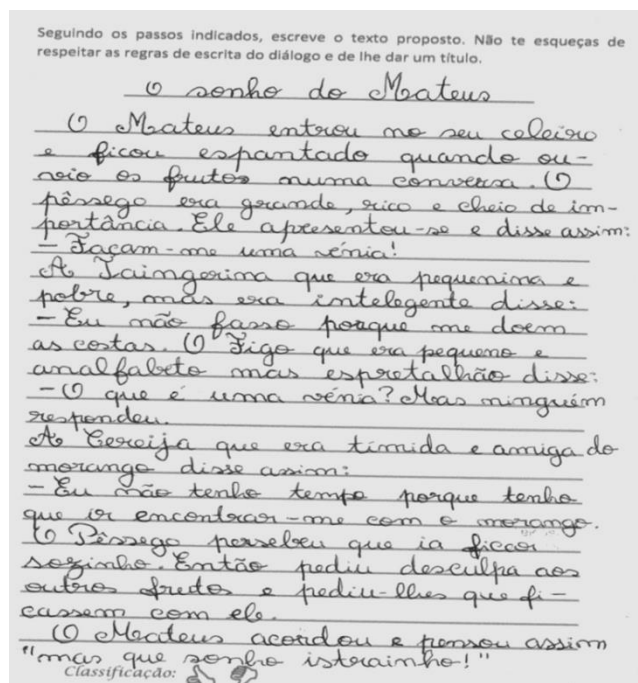 Seguindo os passos indicados, escreve o texto proposto. Não te esqueças de
respeitar as regras de escrita do diálogo e de lhe dar um título.
O sonho do Mateus
O Mateus entrou no seu celeiro
e ficou espantado quando ou-
voio os frutos numa conversa. O
pêssego era grande, rico e cheio de im-
portância. Ele apresentou-se e disse assim:
– Façam-me uma vénia!
A Taingerina que era pequenina e
pobre, mas era intelegente disse:
– Eu não fasso porque me doem
as costas. O Figo que era pequeno e
analfabeto mas espretalhão disse:
– O que é uma vénia? Mas ninguém
respondeu.
A Cereija que era tímida e amiga do
morango disse assim:
– Eu não tenho tempo porque tenho
que ir encontrar-me com o morango.
O Pêssego persebeu que ia ficar
sozinho. Então pediu desculpa aos
outros frutos e pediu-lhes que fi-
cassem com ele.
O Mateus acordou e pensou assim
"mas que sonho istrainho!"
Classificação: